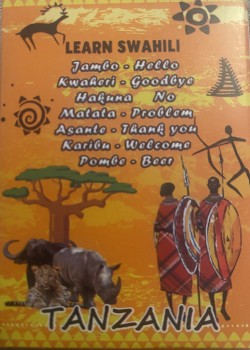 LEARN SWAHILI
Jambo - Hello
Kwaheri - Goodbye
Hakuna - No
Matata - Problem
Asante - Thank you
Karibu - Welcome
Pombe - Beer
TANZANIA